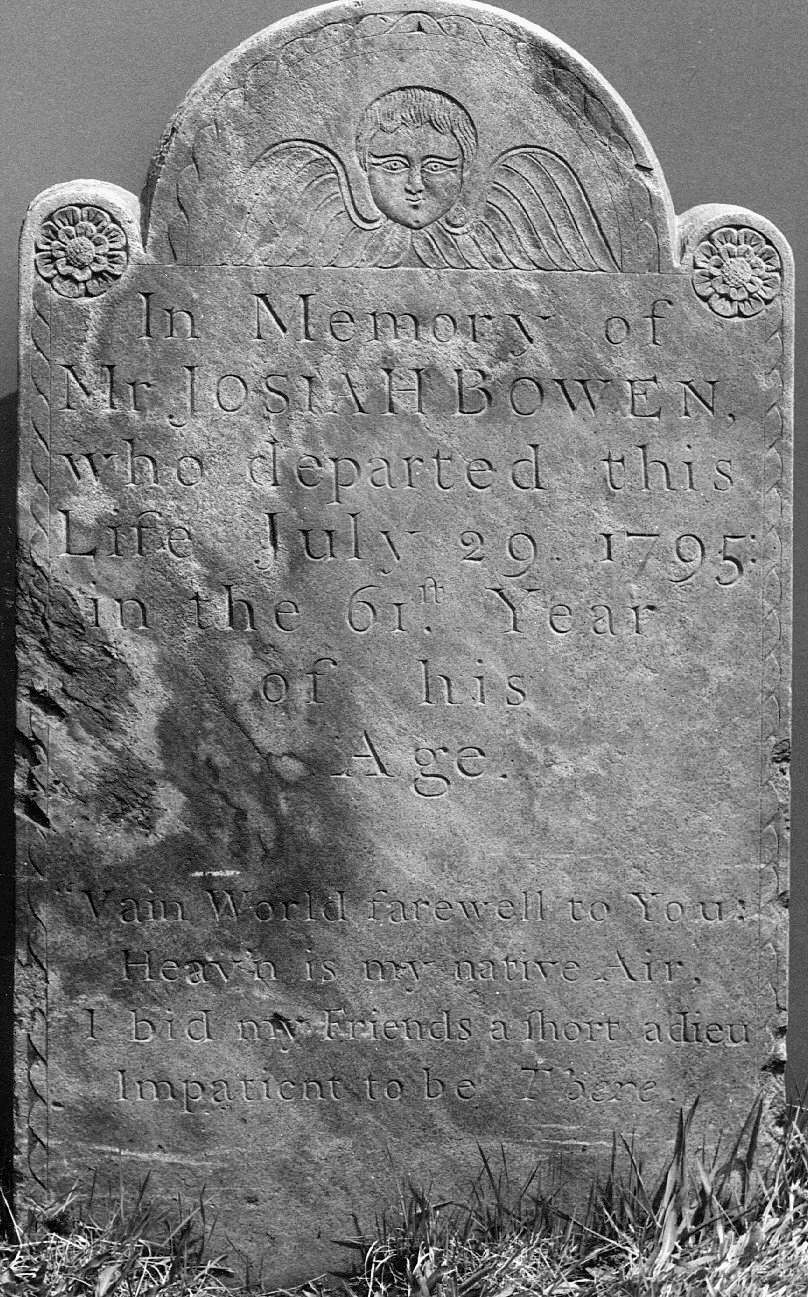 In Memory of
Mr JOSIAH BOWEN,
who departed this
Life July 29. 1795:
in the 61.st Year
of his
Age.
"Vain World farewell to You:
Heav'n is my native Air,
I bid my Friends a ſhort adieu
Impatient to be There.